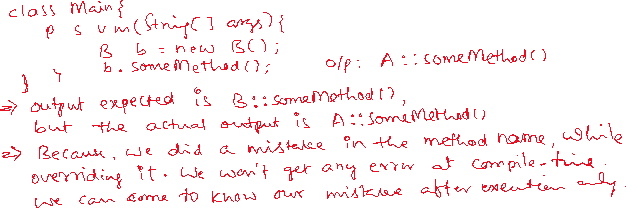 class Main{
p s v m(String[] args){
B b = new B();
b.someMethod(); o/p: A::someMethod()
} }
=> output expected is B::someMethod(),
but the actual output is A::someMethod()
=> Because, we did a mistake in the method name, while
overriding it. We won't get any error at compile-time.
we can come to know our mistake after execution only.